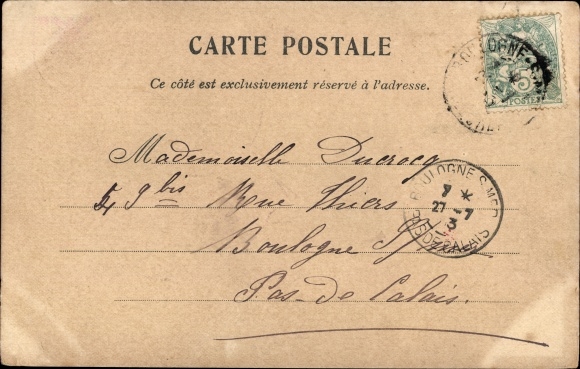 CARTE POSTALE
Ce côté est exclusivement réservé à l'adresse.
5
POSTES
BOULOGNE-S-M
Mademoiselle Ducrocq
59 bis Rue Thiers
Boulogne s/m
Pas-de Calais.
BOULOGNE S. MER
7 *
27 -7
3
PAS DE CALAIS